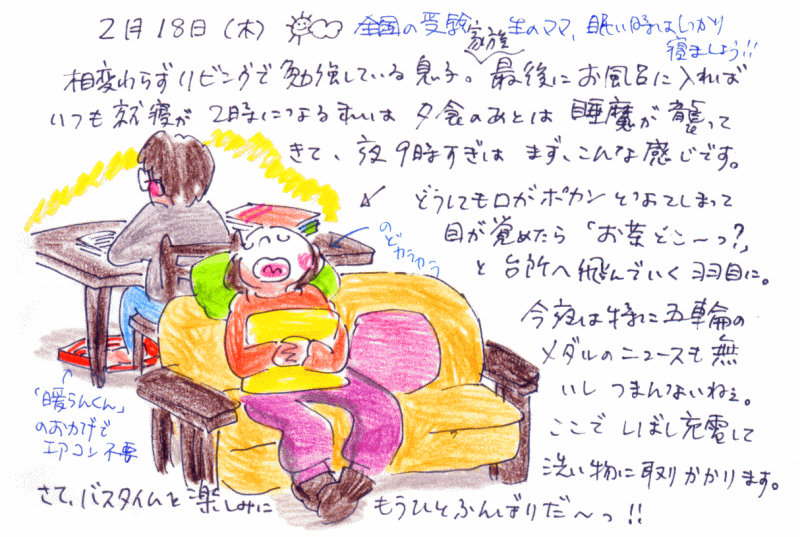 2月18日(木) 全国の受験家族生のママ、眠い時はしっかり
寝ましょう!!
相変わらずリビングで勉強している息子。最後にお風呂に入れば
いつも就寝が2時になる私は夕食のあとは睡魔が襲って
きて、夜9時すぎはまず、こんな感じです。
どうしても口がポカンとなってしまって
のどカラカラ
目が覚めたら「お茶どこ〜っ?」
と台所へ飛んでいく羽目に。
今夜は特に五輪の
メダルのニュースも無
いしつまんないねぇ。
ここでしばし充電して
洗い物に取りかかります。
「暖らんくん」
のおかげで
エアコン不要
さて、バスタイムを楽しみに もうひとふんばりだ〜っ!!